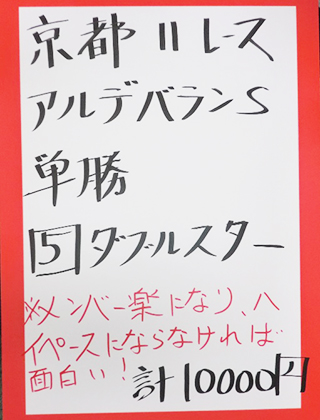 京都11レース
アルデバランS
単勝
5ダブルスター
※メンバー楽になり、ハ
イペースにならなければ
面白い!
計10000円